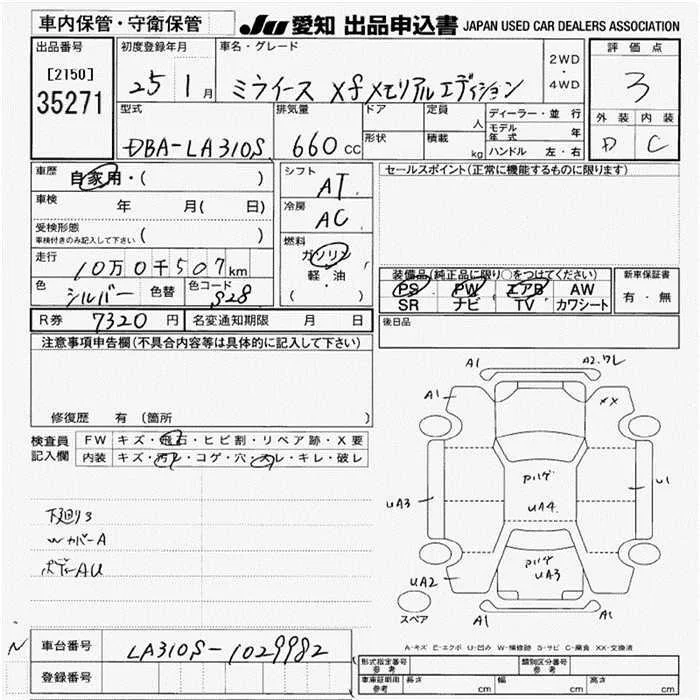 車内保管・守衛保管
JU 愛知 出品申込書 JAPAN USED CAR DEALERS ASSOCIATION
出品番号
[2150]
35271
初度登録年月
25 1 月
車名・グレード
ミライース Xf メモリアルエディション
2WD
・
4WD
評価点
3
外装 内装
D C
型式
DBA-LA310S
排気量
660 cc
ドア
形状
定員
人
積載
kg
ディーラー・並行
モデル年式 年
ハンドル 左・右
車歴
自家用・( )
車検
年 月( 日)
受検形態
車検付きのみ記入して下さい ( )
走行
10万0千507km
色
シルバー
色替
色コード
S28
シフト
AT
冷房
AC
燃料
ガソリン
軽・油
( )
セールスポイント(正常に機能するものに限ります)
装備品(純正品に限り○をつけてください)
PS PW エアB AW
SR ナビ TV カワシート
新車保証書
有・無
後日品
R券 7320 円
名変通知期限 月 日
注意事項申告欄(不具合内容等は具体的に記入して下さい)
修復歴 有 (箇所 )
検査員
記入欄
FW キズ・飛石・ヒビ割・リペア跡・X要
内装 キズ・汚レ・コゲ・穴・スレ・キレ・破レ
下廻り3
Wカバー A
ボデー AU
A1
A2.ワレ
A1
XX
UA3
U1
ハゲ
UA4
ハゲ
UA3
UA2
スペア
A1
A1
N
車台番号
LA310S-1029982
登録番号
A-キズ E-エクボ U-凹み W-補修跡 S-サビ C-腐食 XX-交換済
型式指定番号
参考
類別区分番号
参考
車庫証明用
参考
長さ cm
幅 cm
高さ cm